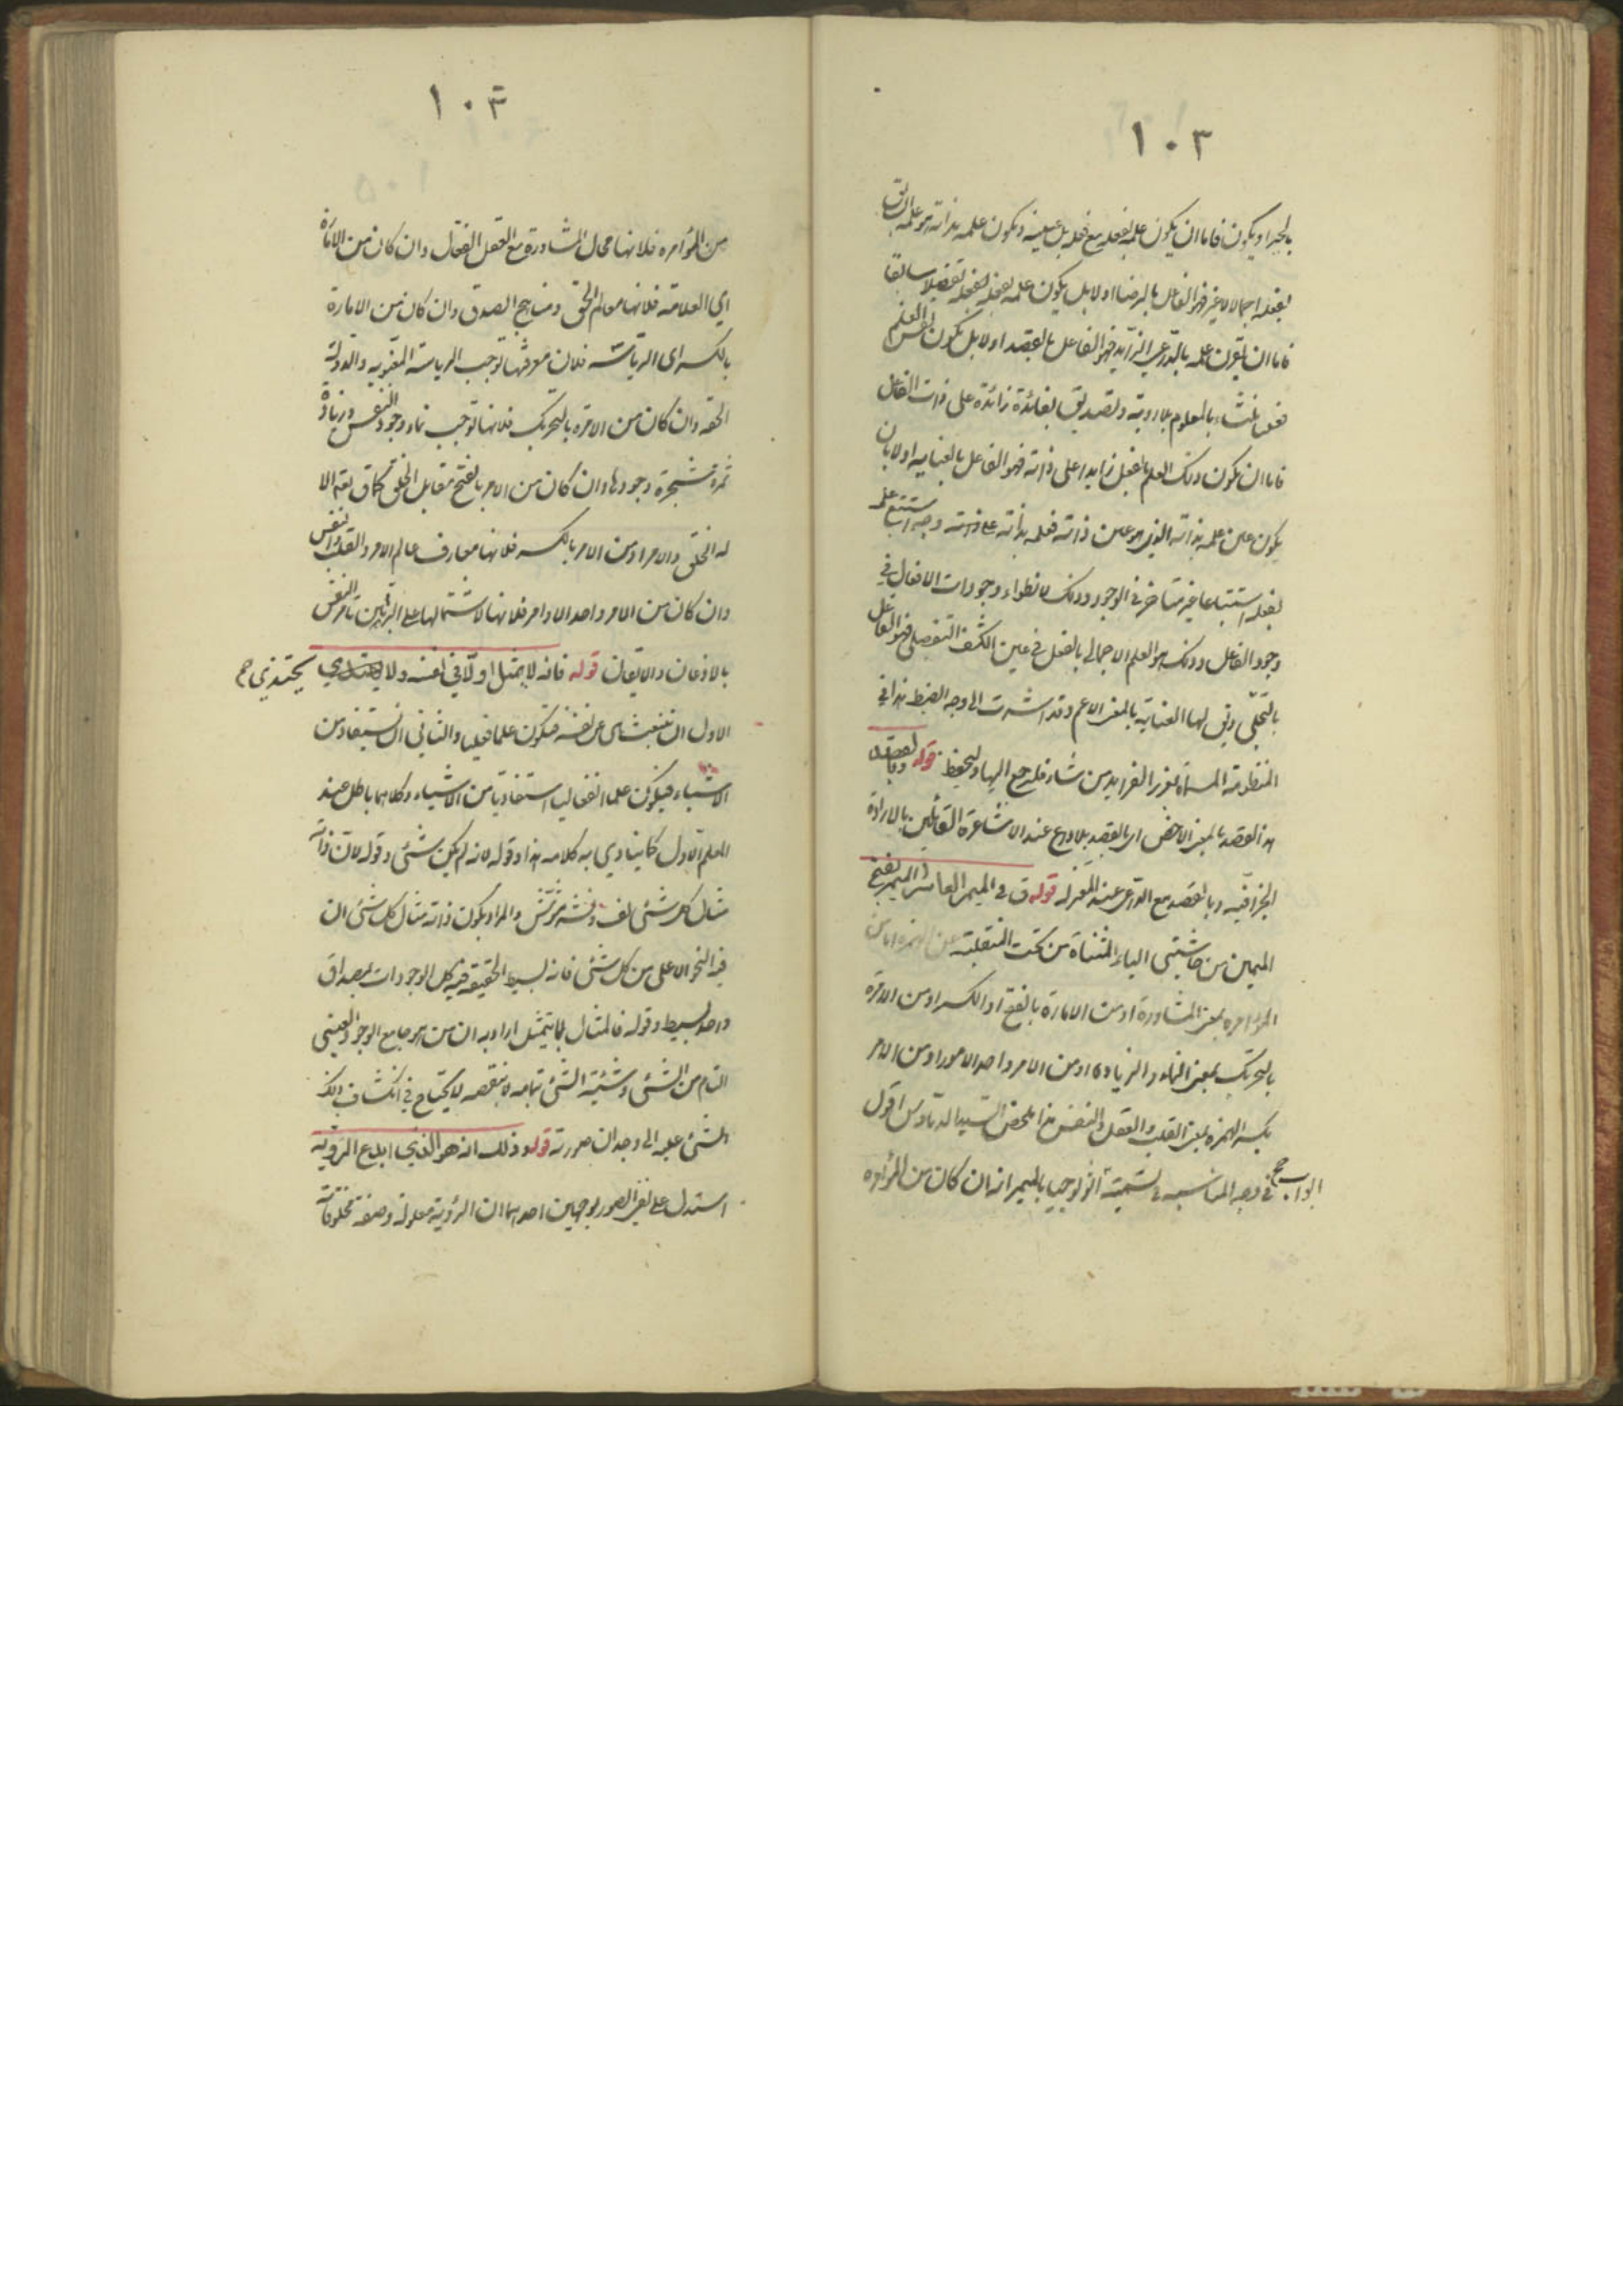 ١٠٢
بالجبر او يكون فاما ان يكون علمه بفعله مع فعله بل عينه و يكون علمه بذاته هو علمه السابق
بفعله اجمالا لا غير فهو الفاعل بالرضا اولا بل يكون علمه بفعله تفصيلا سابقا
فاما ان يقرن علمه بالداعى الزايد فهو الفاعل بالقصد اولا بل يكون نفس العلم
منشاء بالمعلوم بلا روية و تصديق بفائدة زائدة على ذات الفاعل
فاما ان يكون ذلك العلم بالفعل زايدا على ذاته فهو الفاعل بالعناية اولا بان
يكون عين علمه بذاته الذي هو عين ذاته فعلمه بذاته
بفعله استتباعا غير متاخر فى الوجود و ذلك لانطواء وجودات الافعال في
وجود الفاعل و ذلك هو العلم الاجمالى بالفعل فى عين الكشف التفصيلى فهو الفاعل
بالتجلّى و يق لها العناية بالمعنى الاعم و قد اشرت الى وجه الضبط هذا في
المنظومة المسماة بغرر الفرايد من شاء فليرجع اليها و ليحفظ قوله
هذا القصد بالمعنى الاخص اى بالقصد بلا داع عند الاشاعرة القائلين بالارادة
الجزافية و بالقصد مع الداعى عند المعتزله قوله ق فى الميمر العاشر الميمر بفتح
الميمين من حاشيتى الياء المثناة من تحت المنقلبة عن الهمزه اما من
المؤامره بمعنى المشاورة او من الامارة بالفتح او الكسر او من الامرة
بالتحريك بمعنى النماء و الزيادة او من الامر واحد الامور او من الامر
بكسر الهمزه بمعنى القلب و العقل و النفس هذا ملخص السيد الداماد س اقول
الوا صح فى وجه المناسبه فى تسمية اثولوجيا بالميمر انه ان كان من المؤامره
١٠٣
من المؤامره فلانها محال المشاورة مع العقل الفعال و ان كان من الامارة
اي العلامة فلانها معالم الحق و مناهج الصدق و ان كان من الامارة
بالكسر اى الرياسة فلان معرفتها توجب الرياسة المعنويه و الدولة
الحقه و ان كان من الامرة بالتحريك فلانها توجب نماء وجود النفس و زيادة
ثمرة شجرة وجودها و ان كان من الامر بالفتح مقابل الخلق كما ق تعه الا
له الخلق و الامر او من الامر بالكسر فلانها معارف عالم الامر و القلب و النفس
و ان كان من الامر واحد الاوامر فلانها لاشتمالها على البراهين تامر النفس
بالاذعان و الايقان قوله فانه لا يمثل اولا فى نفسه و لا يحتذي صح
الاول ان تنبعث من نفسه فتكون علما فعليا و الثانى ان تستفاد من
الاشياء فيكون علما انفعاليا استفاديا من الاشياء و كلاهما باطل عند
المعلم الاول كما ينادي به كلامه هذا و قوله لانه لم يكن شئ و قوله لان ذاته
مثال كل شئ لف و نشر مشوش و المراد بكون ذاته مثال كل شئ ان
فيه النحو الاعلى من كل شئ فانه بسيط الحقيقة فيه كل الوجودات بمصداق
واحد بسيط و قوله فالمثال لا يتمثل اراد به ان من هو جامع الوجود العينى
التام من الشئ و شيئية الشئ بتمامه لا بنقصه لا يحتاج فى انكشاف ذلك
الشئ عليه الى وجدان صورته قوله و ذلك انه هو الذي ابدع الروية
استدل على نفى الصور بوجهين احدهما ان الرؤية معلولة و صفة مخلوقاته